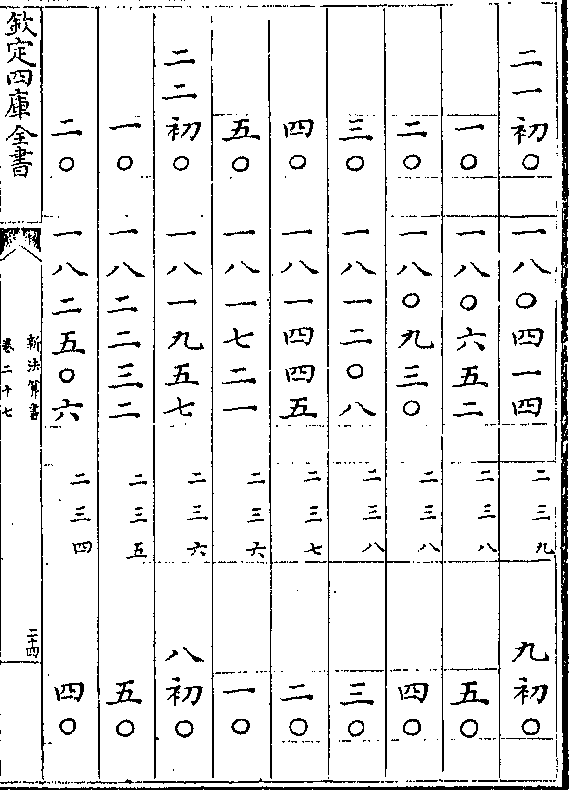 二一初〇 一八〇四一四 二三九 九初〇
一〇 一八〇六五二 二三八 五〇
二〇 一八〇九三〇 二三八 四〇
三〇 一八一二〇八 二三八 三〇
四〇 一八一四四五 二三七 二〇
五〇 一八一七二一 二三六 一〇
二二初〇 一八一九五七 二三六 八初〇
一〇 一八二二三二 二三五 五〇
二〇 一八二五〇六 二三四 四〇
欽定四庫全書
新法算書
卷二十七
二十四